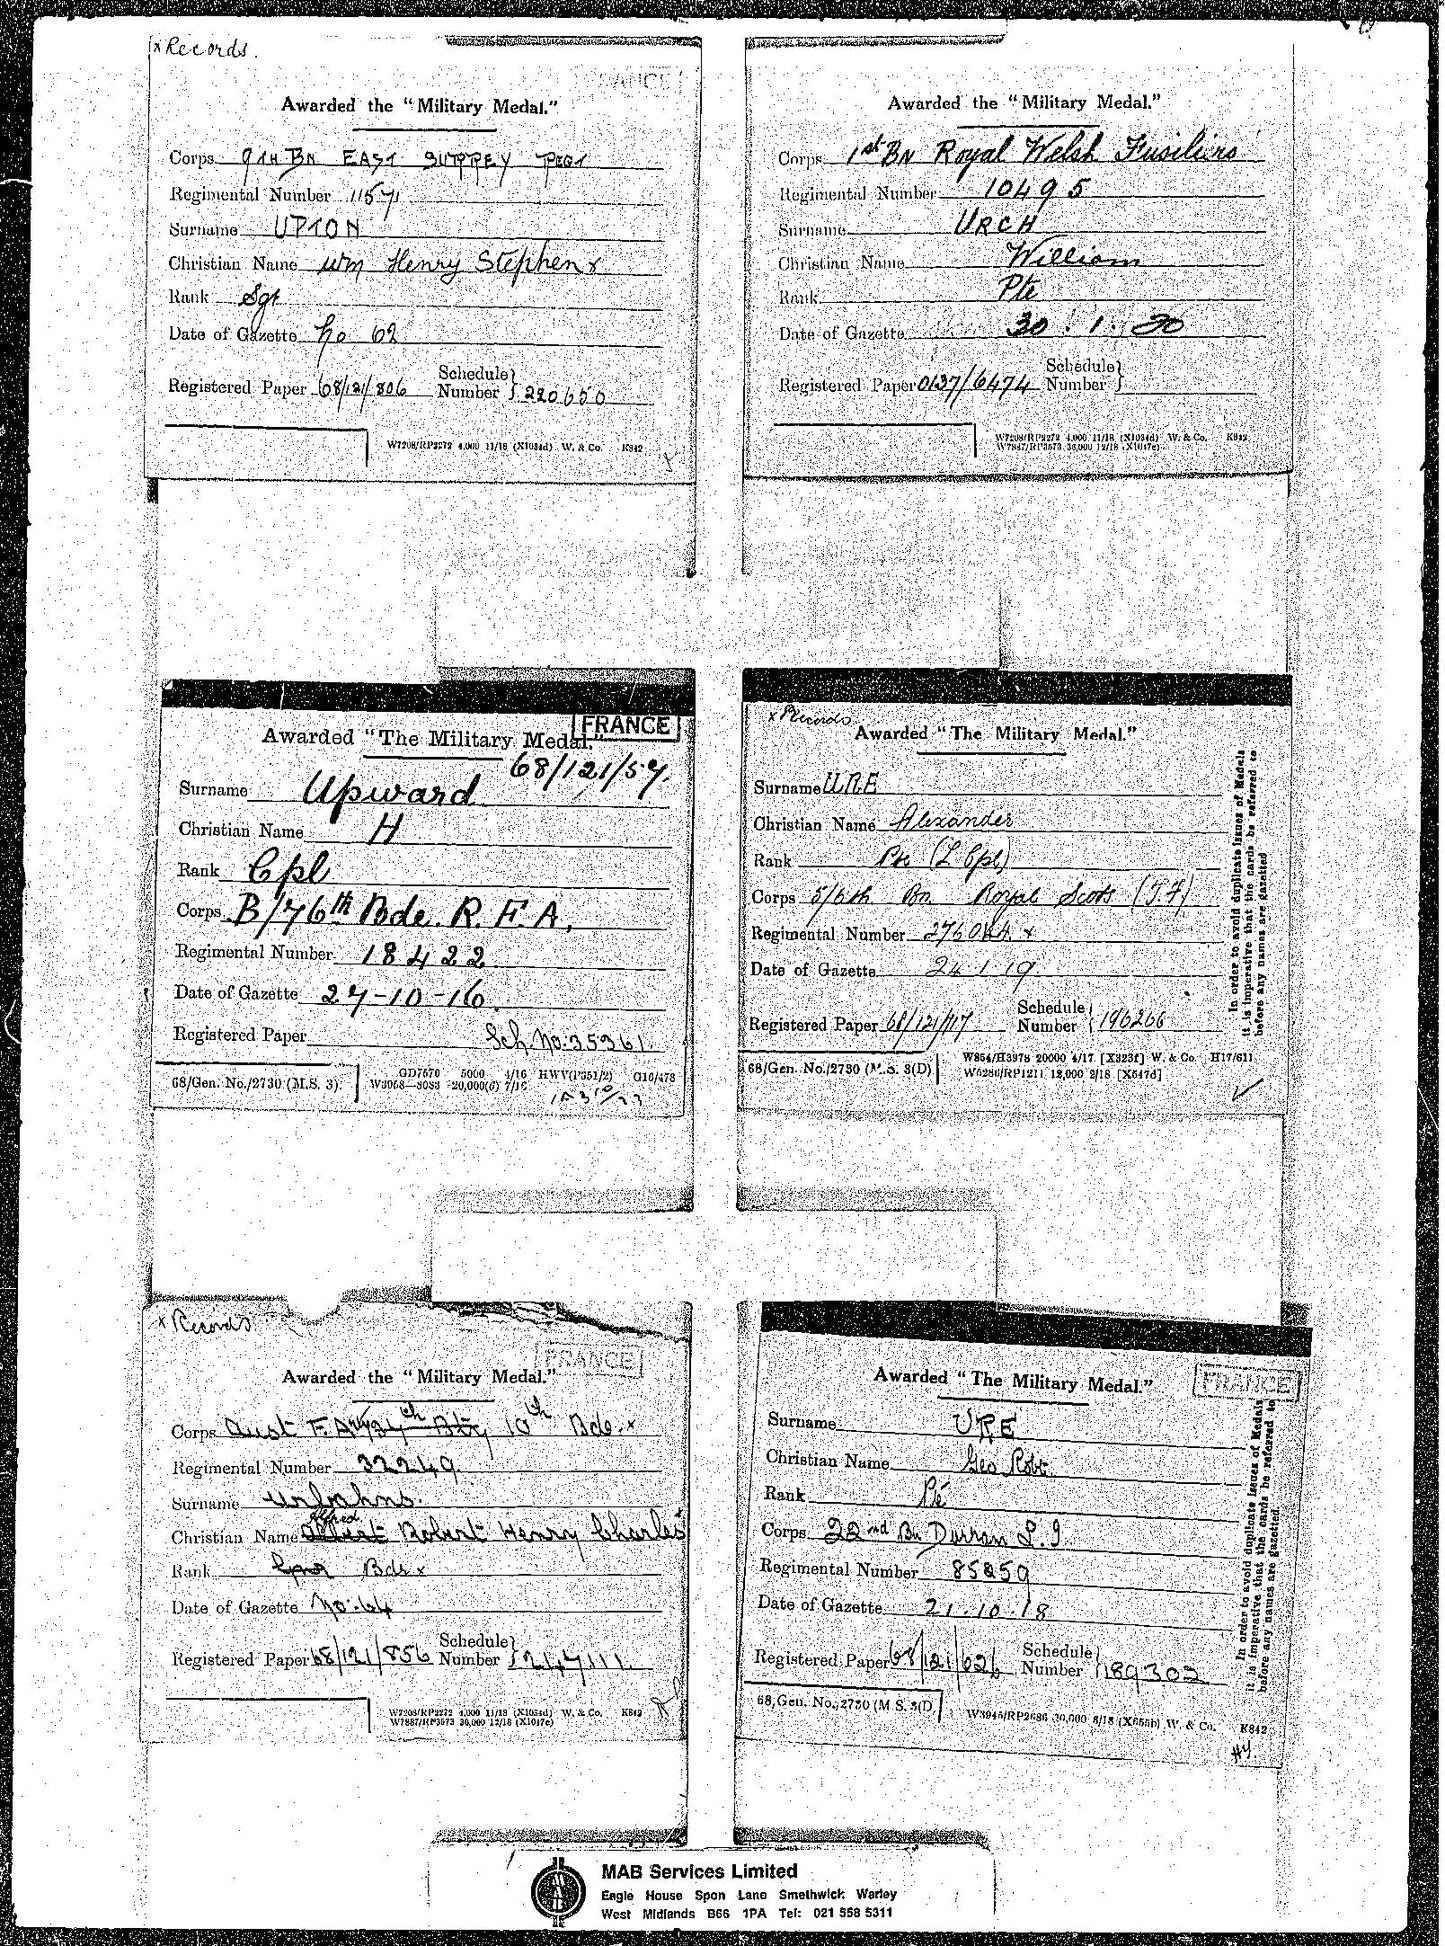 x Records.
FRANCE
Awarded the "Military Medal."
Corps 9TH BN EAST SURREY REGT
Regimental Number 11571
Surname UPTON
Christian Name Wm Henry Stephen x
Rank Sgt
Date of Gazette No 62
Registered Paper 68/121/806 Schedule Number } 220650
W7208/RP2272 4,000 11/18 (X1034d) W. & Co. K842
Awarded the "Military Medal."
Corps 1st Bn Royal Welsh Fusiliers
Regimental Number 10495
Surname URCH
Christian Name William
Rank Pte
Date of Gazette 30.1.20
Registered Paper 0137/6474 Schedule Number }
W7208/RP2272 4,000 11/18 (X1034d) W. & Co. K842
W7887/RP3573 30,000 12/18 (X1017e)
FRANCE
Awarded "The Military Medal."
68/121/57.
Surname Upward
Christian Name H
Rank Cpl
Corps B/76th Bde. R.F.A,
Regimental Number 18422
Date of Gazette 27-10-16
Registered Paper Sch. No: 35361.
68/Gen. No./2730 (M.S. 3)
GD7570 5000 4/16 HWV(P351/2) G16/478
W3068—8083 20,000(6) 7/16
x Records
Awarded "The Military Medal."
Surname URE
Christian Name Alexander
Rank Pte (L Cpl)
Corps 5/6th Bn Royal Scots (T.F)
Regimental Number 276044 x
Date of Gazette 24.1.19.
Registered Paper 68/121/717 Schedule Number { 196266
68/Gen. No./2730 (M.S. 3(D)
W854/H3978 20000 4/17 [X323f] W. & Co. H17/611
W5280/RP1211 12,000 2/18 [X547d]
In order to avoid duplicate Issues of Medals
it is imperative that the cards be referred to
before any names are gazetted
x Records
FRANCE
Awarded the "Military Medal."
Corps Aust F. Arty 37th Bty 10th Bde. x
Regimental Number 32249
Surname Urbahns.
Alfred
Christian Name Albert Robert Henry Charles
Rank Gnr Bdr x
Date of Gazette No. 64
Registered Paper 68/121/856 Schedule Number } 247111.
W7208/RP2272 4,000 11/18 (X1034d) W. & Co. K842
W7887/RP3573 30,000 12/18 (X1017e)
FRANCE
Awarded "The Military Medal."
Surname URE
Christian Name Geo Robt
Rank Pte
Corps 22nd Bn Durham L.I
Regimental Number 85259
Date of Gazette 21.10.18
Registered Paper 68/121/626 Schedule Number } 189302
68/Gen. No./2730 (M.S. 3(D)
W3945/RP2686 30,000 8/18 (X655b) W. & Co. K842
In order to avoid duplicate Issues of Medals
it is imperative that the cards be referred to
before any names are gazetted.
MAB Services Limited
Eagle House Spon Lane Smethwick Warley
West Midlands B66 1PA Tel: 021 558 5311